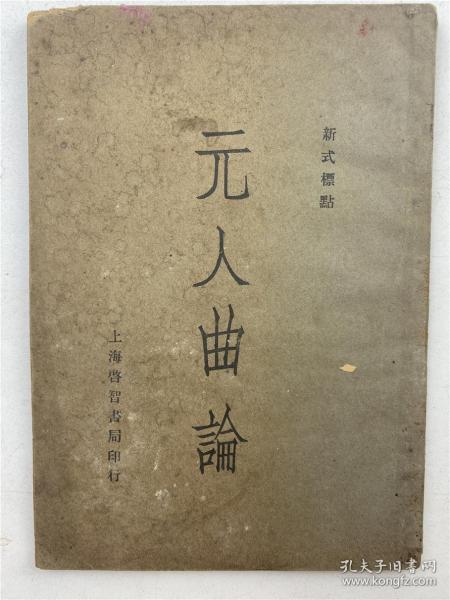 新式標點
元人曲論
上海啓智書局印行
孔夫子旧书网
www.kongfz.com